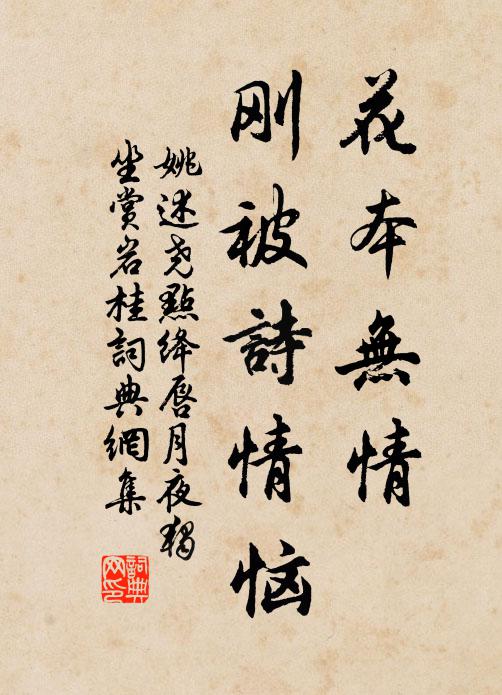 花本無情
刚被詩情恼
姚述尧點绛唇月夜獨
坐赏岩桂詞典網集
詞典
网印